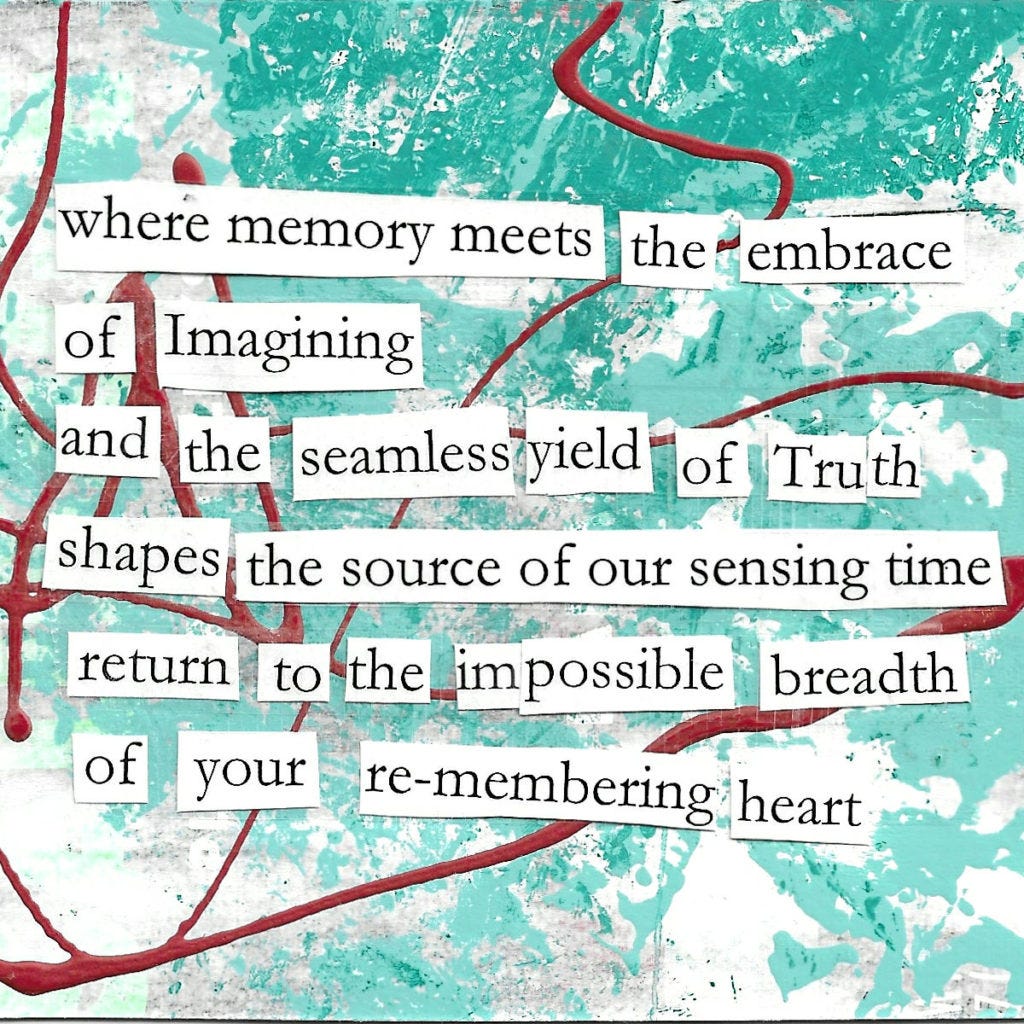 where memory meets the embrace
of Imagining
and the seamless yield of Truth
shapes the source of our sensing time
return to the impossible breadth
of your re-membering heart